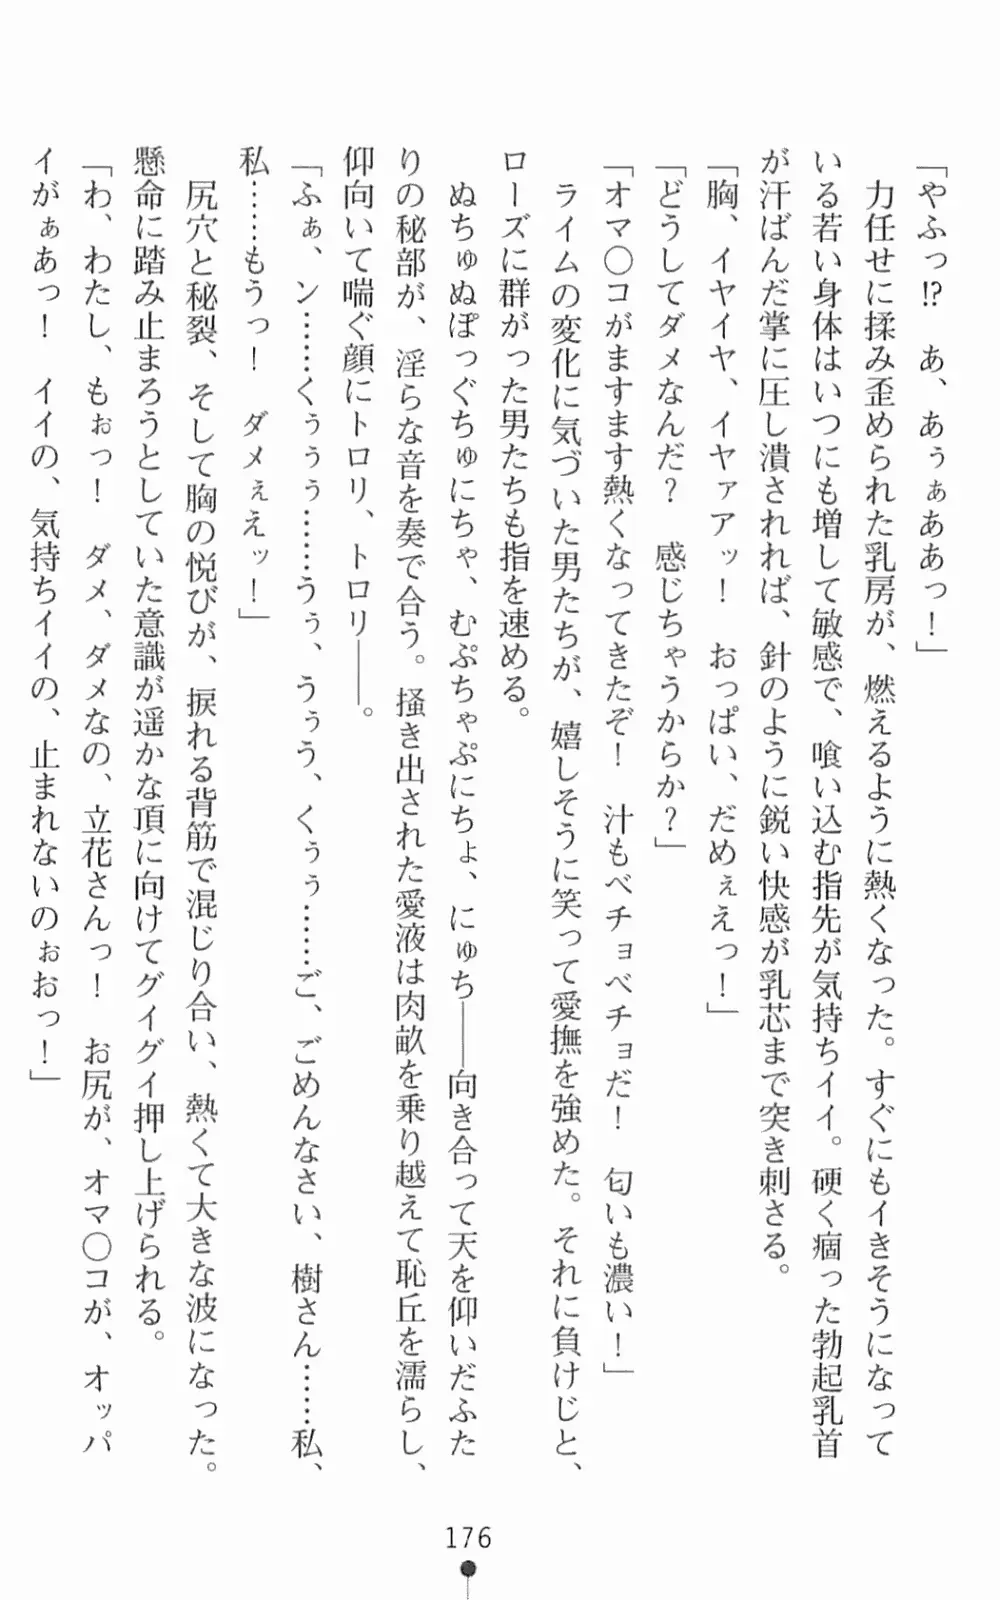 「やふっ!?　あ、あぅぁああっ！」
　力任せに揉み歪められた乳房が、燃えるように熱くなった。すぐにもイきそうになって
いる若い身体はいつにも増して敏感で、喰い込む指先が気持ちイイ。硬く痼った勃起乳首
が汗ばんだ掌に圧し潰されれば、針のように鋭い快感が乳芯まで突き刺さる。
「胸、イヤイヤ、イヤァアッ！　おっぱい、だめぇえっ！」
「どうしてダメなんだ？　感じちゃうからか？」
「オマ〇コがますます熱くなってきたぞ！　汁もベチョベチョだ！　匂いも濃い！」
　ライムの変化に気づいた男たちが、嬉しそうに笑って愛撫を強めた。それに負けじと、
ローズに群がった男たちも指を速める。
　ぬちゅぬぽっぐちゅにちゃ、むぷちゃぷにちょ、にゅち――向き合って天を仰いだふた
りの秘部が、淫らな音を奏で合う。掻き出された愛液は肉畝を乗り越えて恥丘を濡らし、
仰向いて喘ぐ顔にトロリ、トロリ――。
「ふぁ、ン……くぅぅぅ……うぅ、うぅう、くぅぅ……ご、ごめんなさい、樹さん……私、
私……もうっ！　ダメぇえッ！」
　尻穴と秘裂、そして胸の悦びが、捩れる背筋で混じり合い、熱くて大きな波になった。
懸命に踏み止まろうとしていた意識が遥かな頂に向けてグイグイ押し上げられる。
「わ、わたし、もぉっ！　ダメ、ダメなの、立花さんっ！　お尻が、オマ〇コが、オッパ
イがぁあっ！　イイの、気持ちイイの、止まれないのぉおっ！」
176